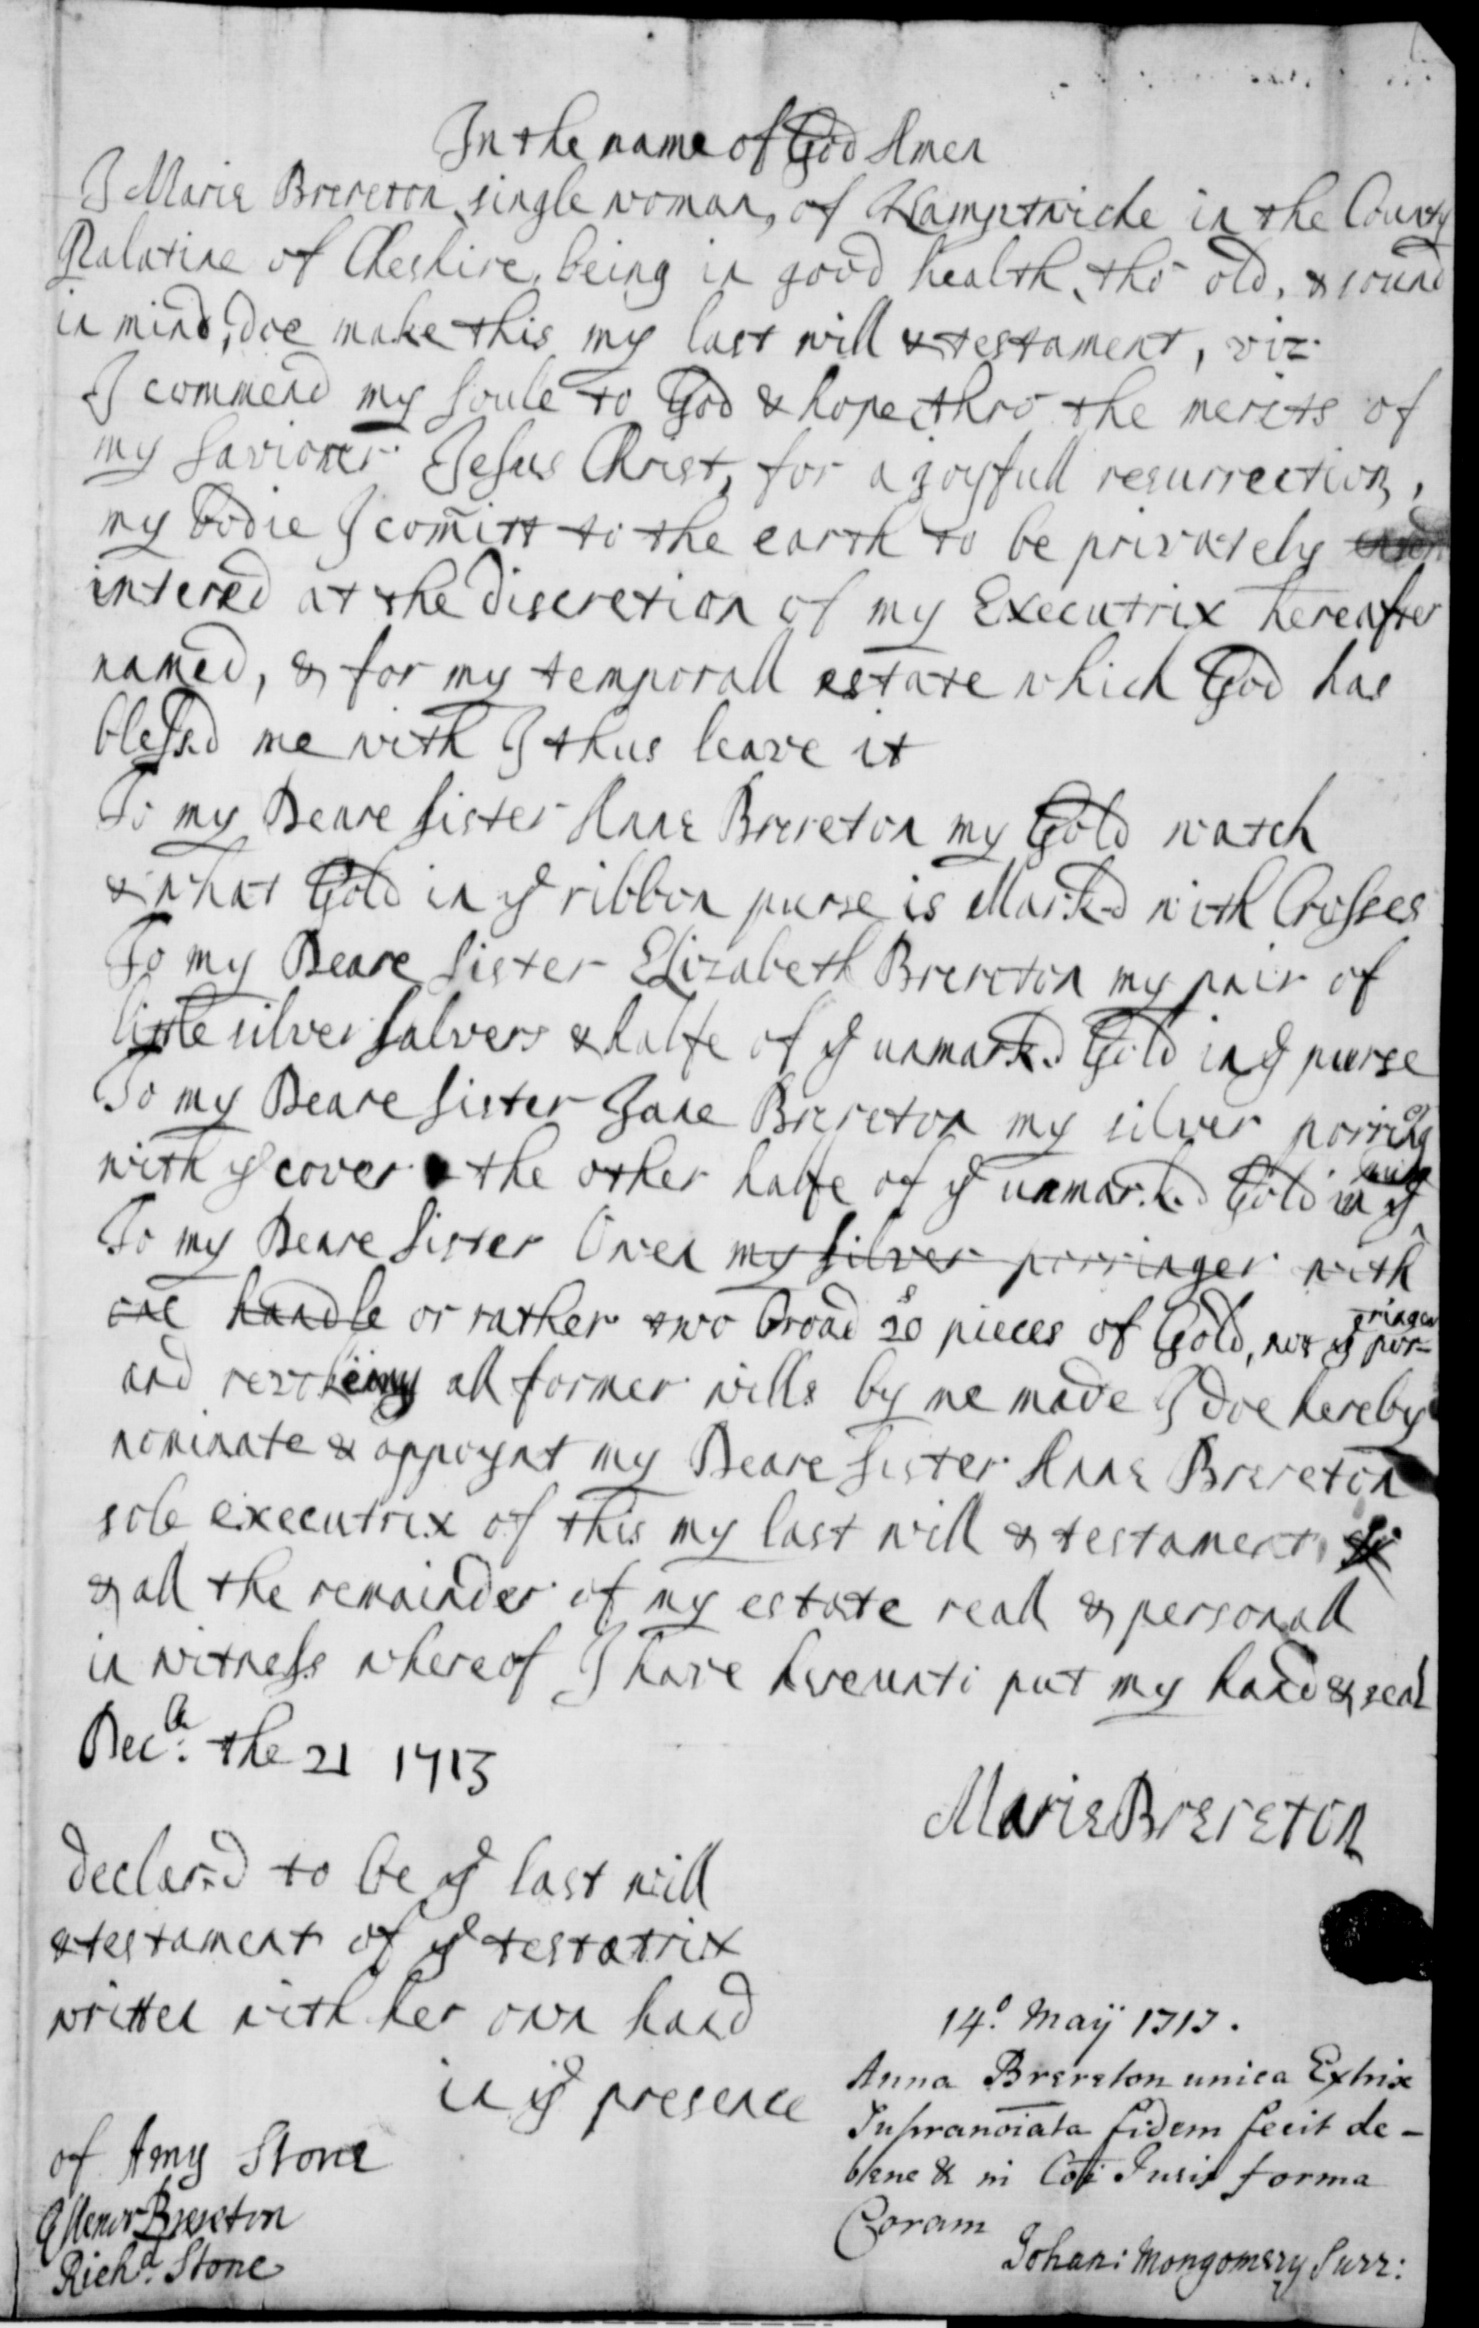 In the name of God Amen
I Marie Brereton single woman, of Namptwiche in the County
Palatine of Cheshire, being in good health, tho old, & sound
in mind, doe make this my last will & testament, viz
I commend my soule to God & hope thro the merits of
my saviour Jesus Christ, for a joyfull resurrection,
my bodie I com̃itt to the earth to be privately
intered at the discretion of my Executrix hereafter
named, & for my temporall estate which God has
blessd me with I thus leave it
To my Deare sister Anne Brereton my Gold watch
& what Gold in yᵉ ribbon purse is Marked with Crosses
To my Deare sister Elizabeth Brereton my pair of
litle silver salvers & halfe of yᵉ unmarked Gold in yᵉ purse
To my Deare sister Jane Brereton my silver porring
with yᵉ cover & the other halfe of yᵉ unmarked Gold in yᵉ
To my Deare sister Owen my silver porringer with
one handle or rather two broad 20ˢ pieces of Gold, not yᵉ porringer
and revokeing all former wills by me made I doe hereby
nominate & appoynt my Deare sister Anne Brereton
sole executrix of this my last will & testament,
& all the remainder of my estate reall & personall
in witness whereof I have hereunto put my hand & seal
Decᵇ: the 21 1713
Marie Brereton
declared to be yᵉ last will
& testament of yᵉ testatrix
written with her own hand
in yᵉ presence
of Amy Stone
Ellenor Brereton
Richᵈ: Stone
14º. Maÿ 1717.
Anna Brereton unica Extrix
Supranoiata fidem fecit de-
bene & in Coi Juris forma
Coram
Johan: Mongomery Surr: